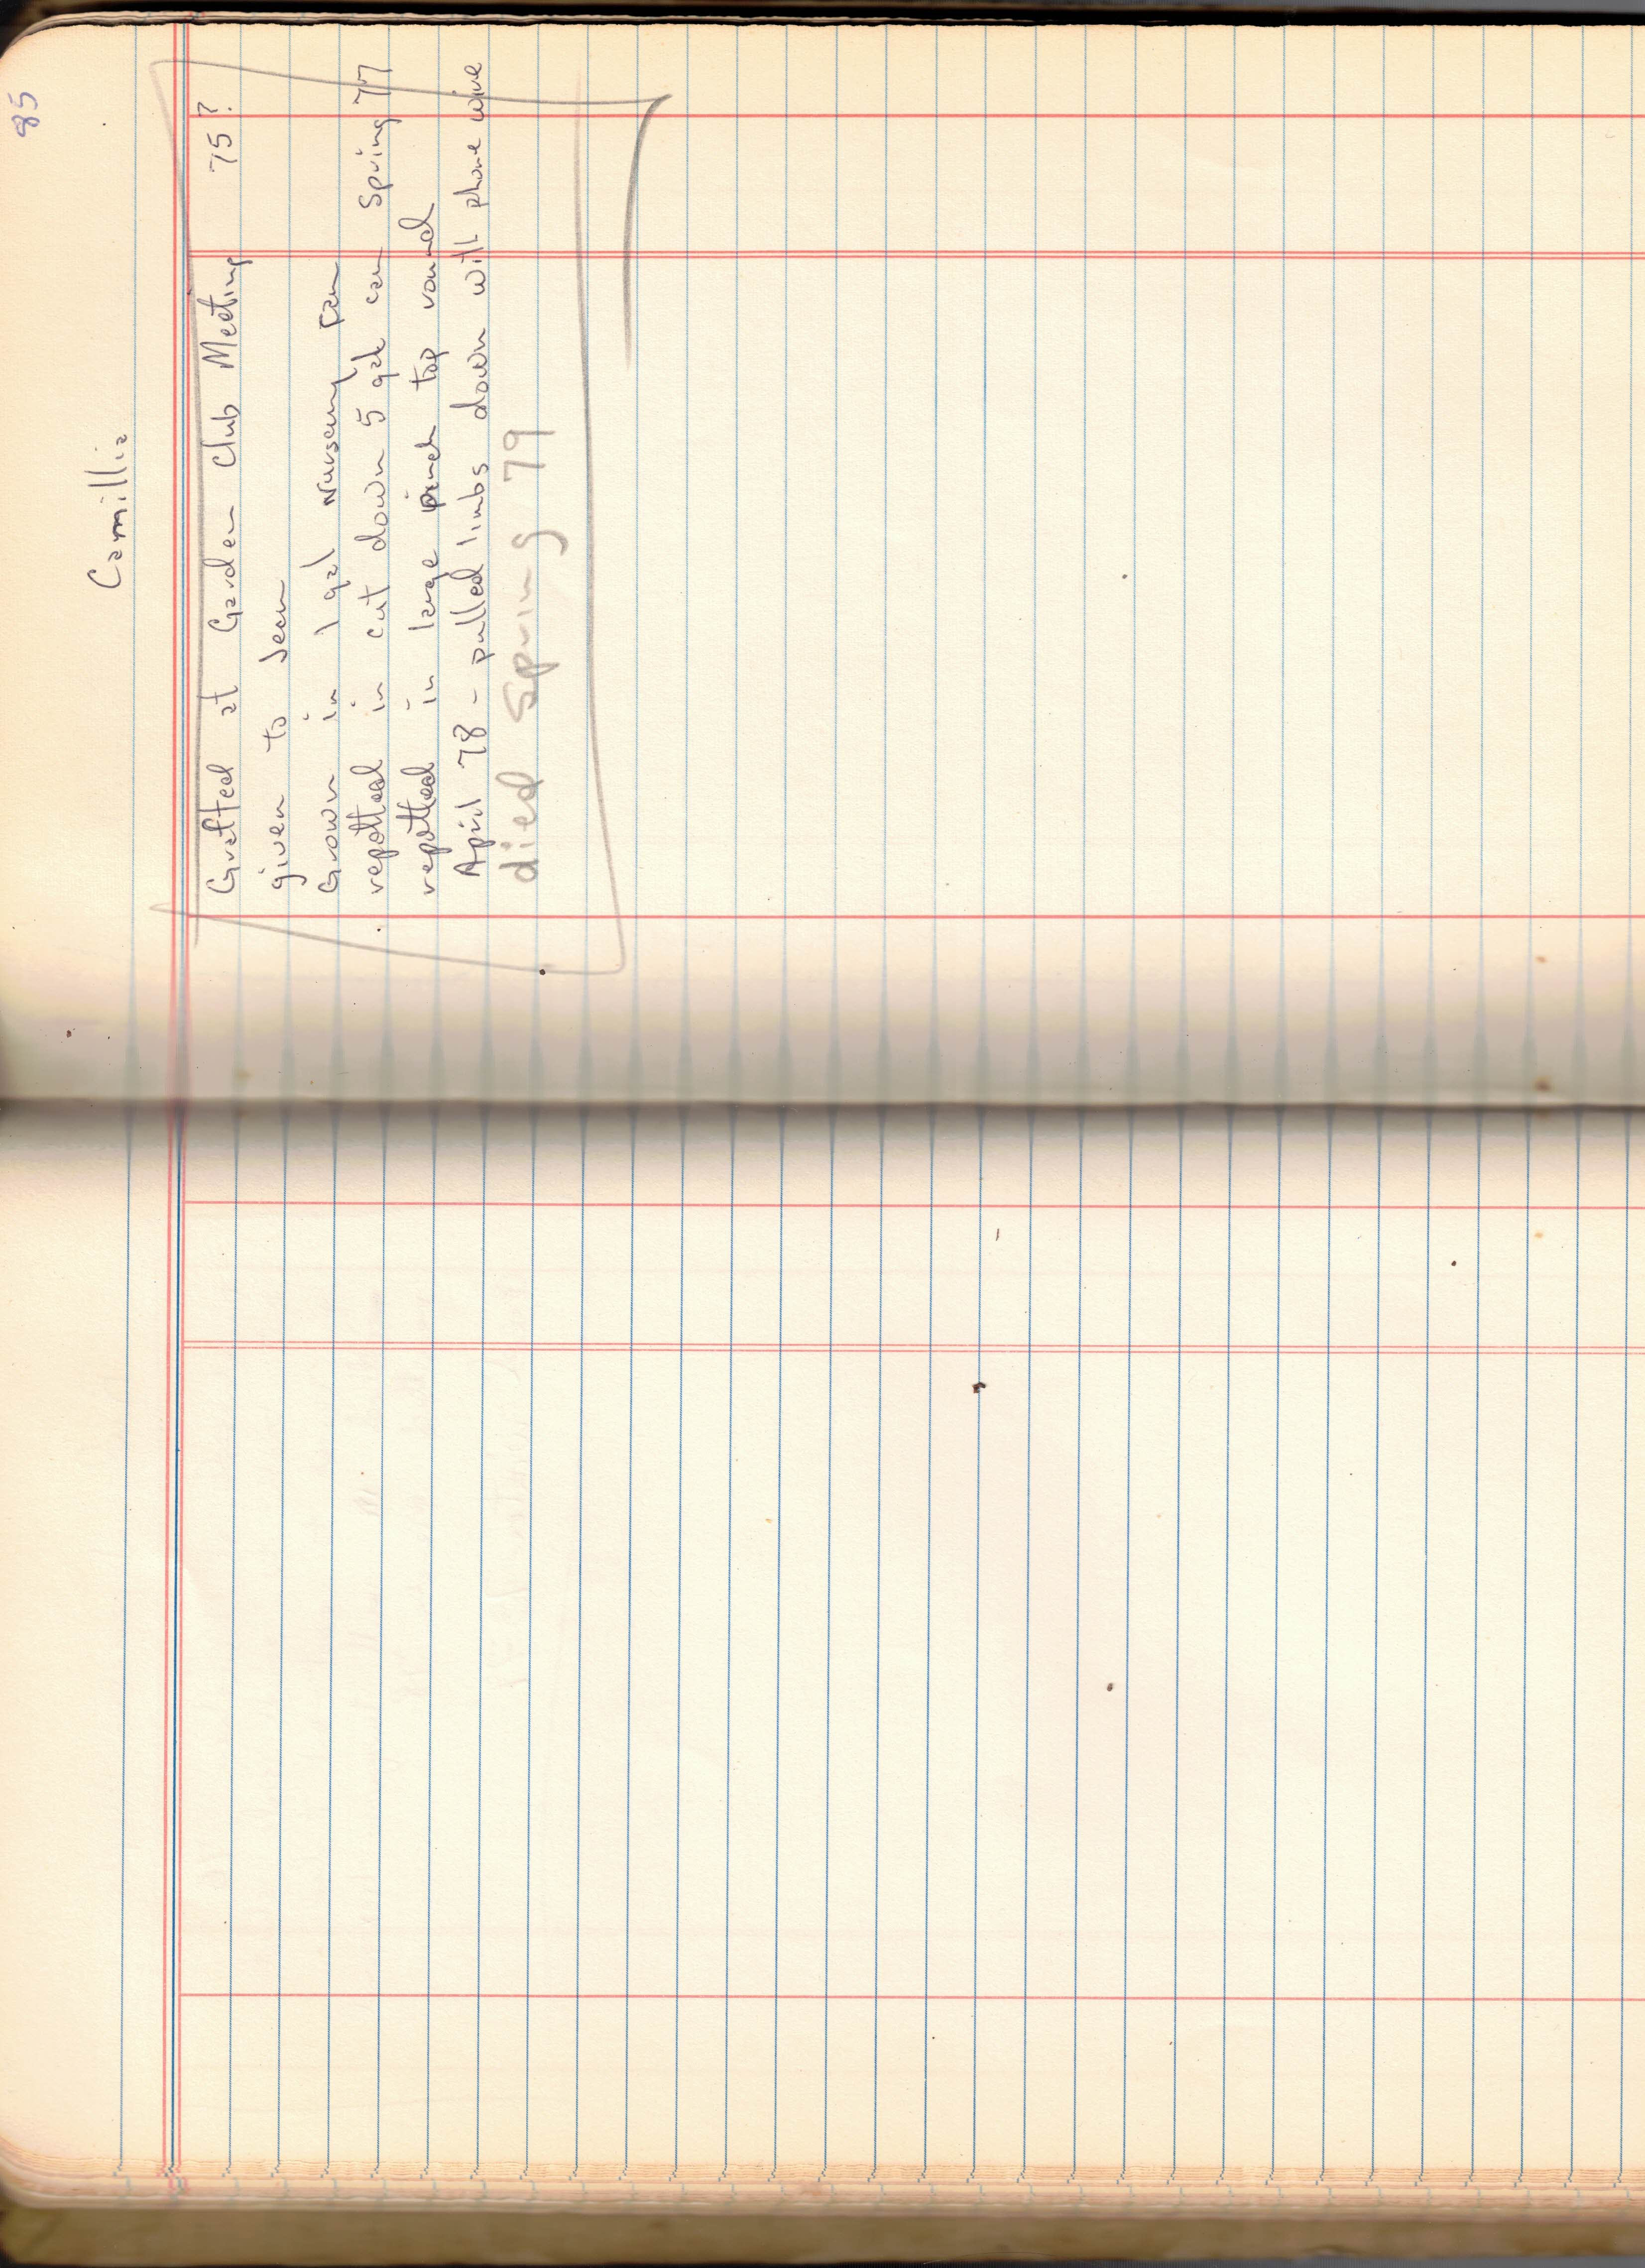 85
Camillia
Grafted at Garden Club Meeting 75?
given to Jean
Grown in 1 gal Nursery can
repotted in cut down 5 gal can Spring 77
repotted in large pinch top round
April 78 - pulled limbs down with phone wire
died Spring 79